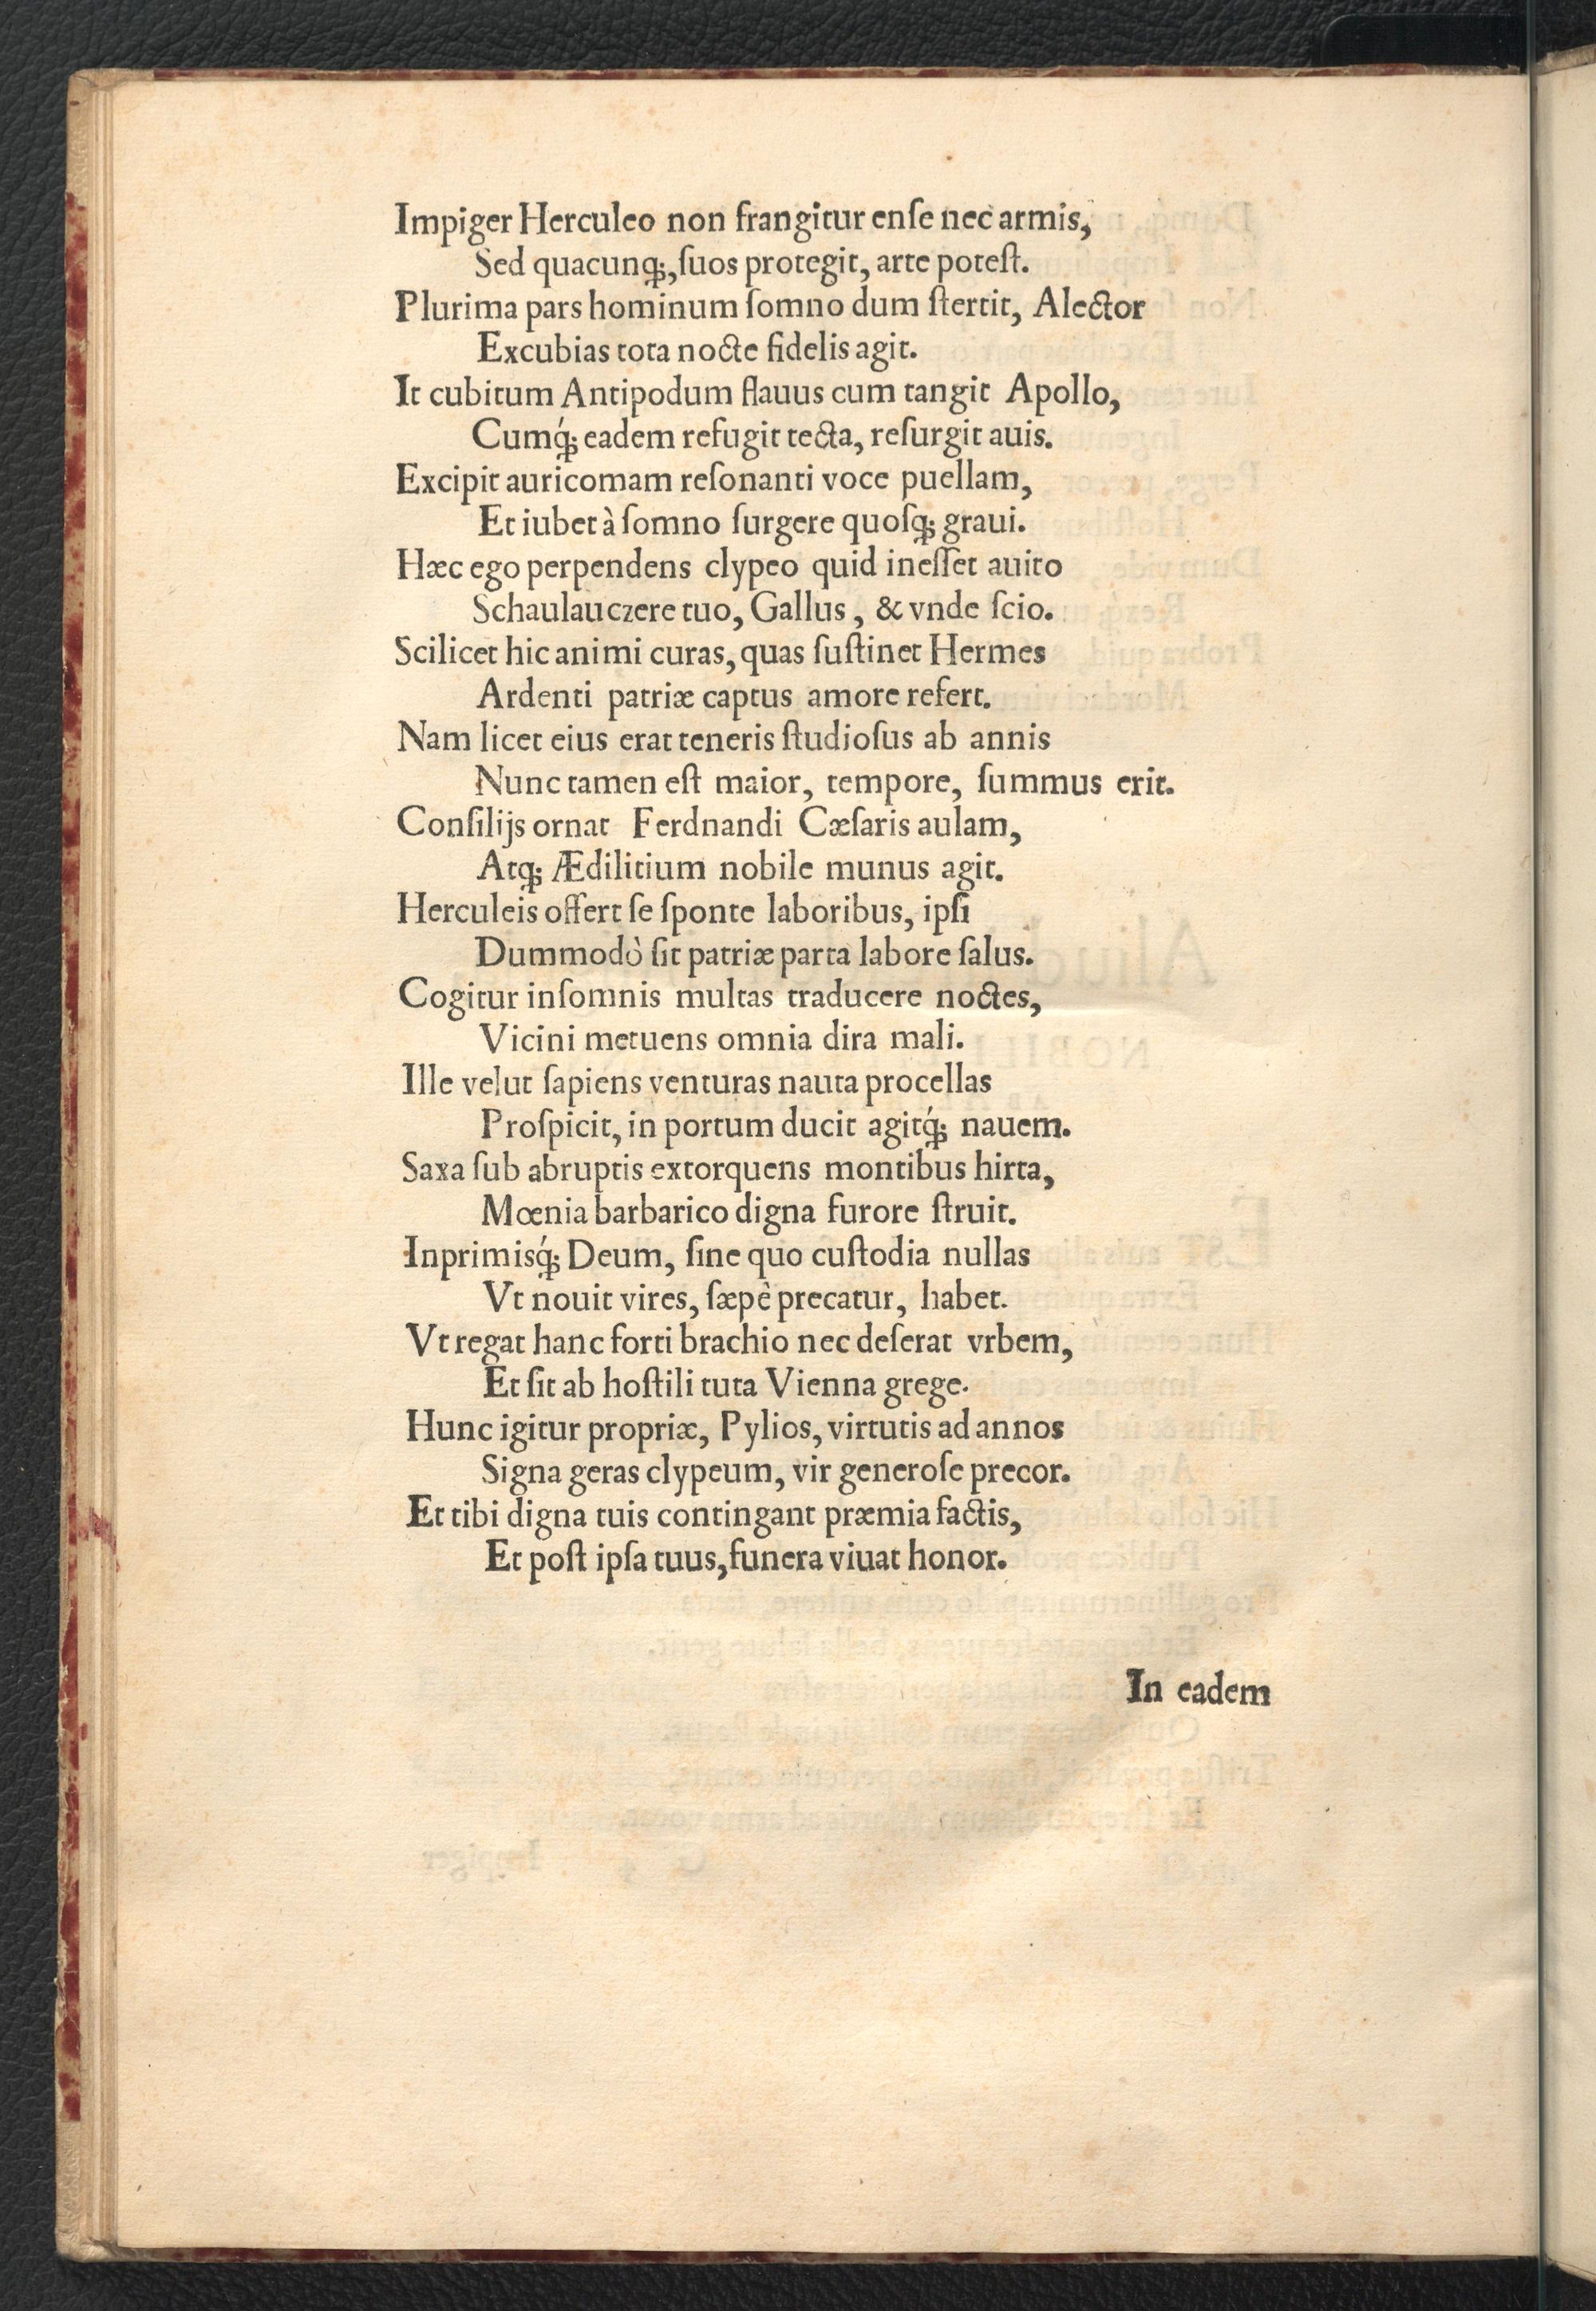 Impiger Herculeo non frangitur enſe nec armis,
Sed quacunq;, ſuos protegit, arte poteſt.
Plurima pars hominum ſomno dum ſtertit, Alector
Excubias tota nocte fidelis agit.
It cubitum Antipodum flauus cum tangit Apollo,
Cumq́; eadem refugit tecta, reſurgit auis.
Excipit auricomam reſonanti voce puellam,
Et iubet à ſomno ſurgere quoſq; graui.
Hæc ego perpendens clypeo quid ineſſet auito
Schaulauczere tuo, Gallus, & vnde ſcio.
Scilicet hic animi curas, quas ſuſtinet Hermes
Ardenti patriæ captus amore refert.
Nam licet eius erat teneris ſtudioſus ab annis
Nunc tamen eſt maior, tempore, ſummus erit.
Conſilijs ornat Ferdnandi Cæſaris aulam,
Atq; Ædilitium nobile munus agit.
Herculeis offert ſe ſponte laboribus, ipſi
Dummodò ſit patriæ parta labore ſalus.
Cogitur inſomnis multas traducere noctes,
Vicini metuens omnia dira mali.
Ille velut ſapiens venturas nauta procellas
Proſpicit, in portum ducit agitq́; nauem.
Saxa ſub abruptis extorquens montibus hirta,
Mœnia barbarico digna furore ſtruit.
Inprimisq́; Deum, ſine quo cuſtodia nullas
Vt nouit vires, ſæpè precatur, habet.
Vt regat hanc forti brachio nec deſerat vrbem,
Et ſit ab hoſtili tuta Vienna grege.
Hunc igitur propriæ, Pylios, virtutis ad annos
Signa geras clypeum, vir generoſe precor.
Et tibi digna tuis contingant præmia factis,
Et poſt ipſa tuus, funera viuat honor.
In eadem